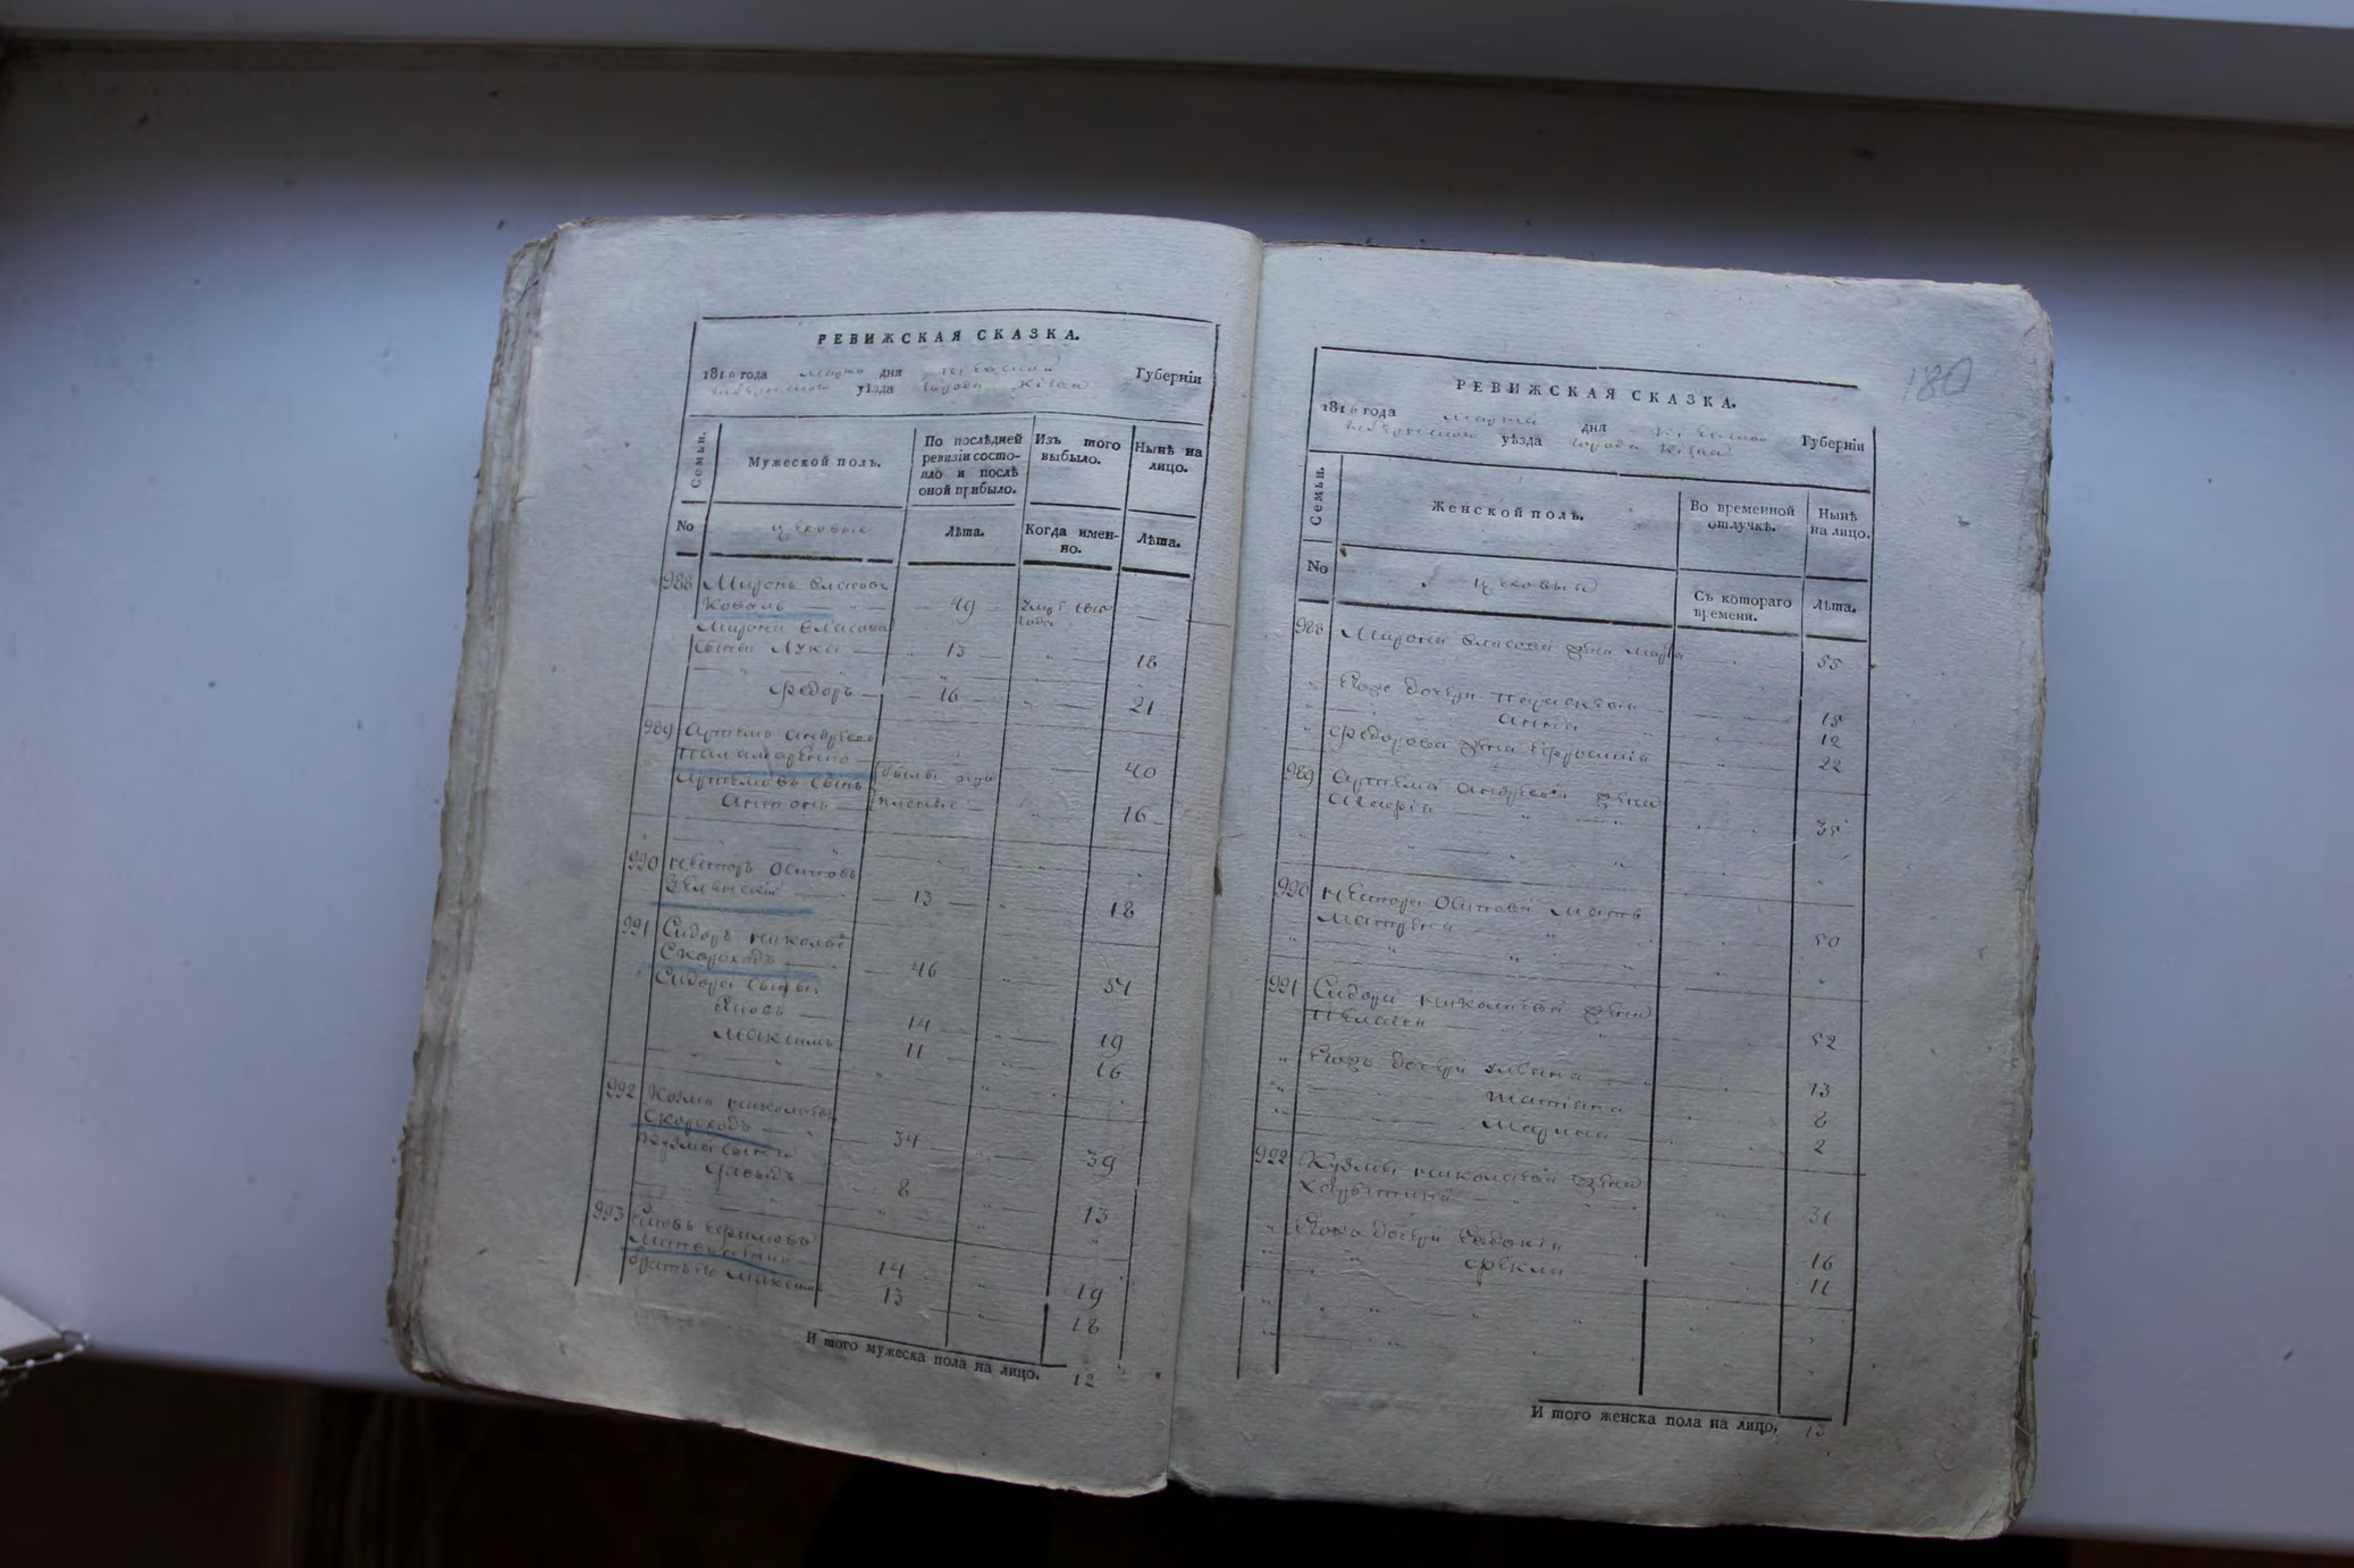 РЕВИЖСКАЯ СКАЗКА.
1816 года марта дня Кіевской Губерніи
уѣзда города Кіева
Семьи.
Мужеской полъ.
По послѣдней ревизіи состояло и послѣ оной прибыло.
Изъ того выбыло.
Нынѣ на лицо.
No
цеховые
Лѣта.
Когда именно.
Лѣта.
988 Миронъ Власовъ
Коваль 49
Мирона Власова
сыны Лука 13 18
Федоръ 16 21
989 Артемъ Андреевъ
Паламаренко 40
Артемовъ сынъ
Антонъ 16
990 Несторъ Осиповъ
13 18
991 Сидоръ Николаевъ
Скороходъ 46 51
Сидора сыны
Яковъ 14 19
Максимъ 11 16
992 Козма Николаевъ
Скороходъ 34 39
Кузмы сынъ
Давыдъ 8 13
993 Яковъ Ефимовъ
14 19
братъ его Максимъ 13 18
И того мужеска пола на лицо. 12
180
РЕВИЖСКАЯ СКАЗКА.
1816 года марта дня Кіевской Губерніи
уѣзда города Кіева
Семьи.
Женской полъ.
Во временной отлучкѣ.
Нынѣ на лицо.
No
цеховыя
Съ котораго времени.
Лѣта.
988 Мирона Власова жена Марфа 55
Его же дочери Параскевія 15
Анна 12
Федорова жена Ефросинія 22
989 Артема Андреева жена
Агафія 35
990 Нестора Осипова мать
Матрена 50
991 Сидора Николаева жена
Пелагея 52
Его же дочери Ульяна 13
Татіяна 8
Марина 2
992 Кузмы Николаева жена
Харытина 31
Его же дочери Евдокія 16
Фекла 11
И того женска пола на лицо. 13